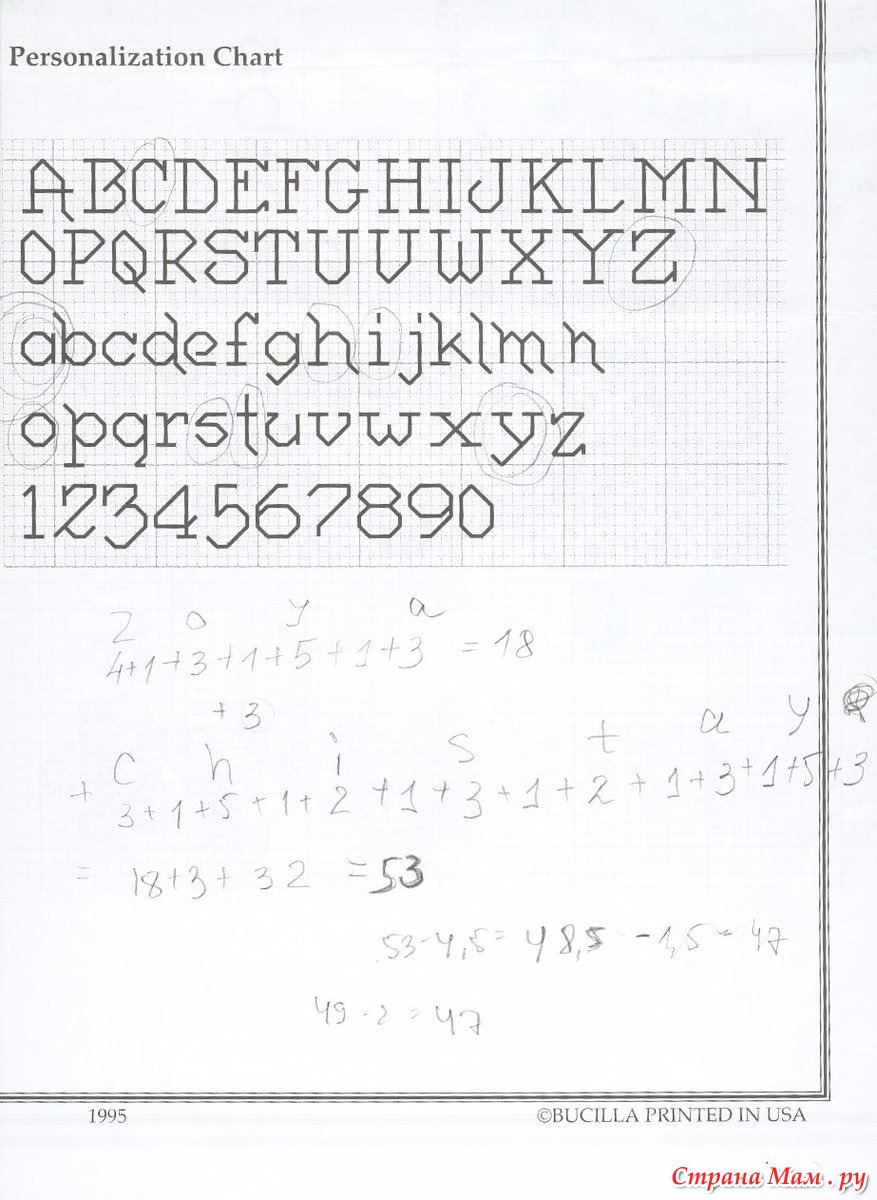 Personalization Chart
ABCDEFGHIJKLMN
OPQRSTUVWXYZ
abcdefghijklmn
opqrstuvwxyz
1234567890
Z o y a
4+1+3+1+5+1+3 = 18
+ 3
C h i s t a y
+ 3+1+5+1+2+1+3+1+2+1+3+1+5+3
= 18+3+32 = 53
53-4,5= 48,5 -1,5= 47
49-2=47
1995 ©BUCILLA PRINTED IN USA
Страна Мам.ру